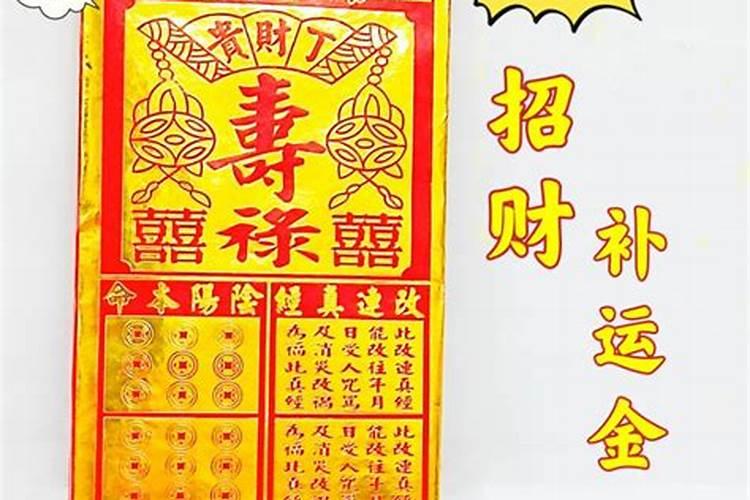 丁財貴
壽
祿
囍 囍
改連真經
陰陽本命
此改連真經
能改往年月
日受人咒罵
及消災改禍
為此真經
此改連真經
能改往年月
日受人咒罵
及消災改禍
為此真經
招财
补运金